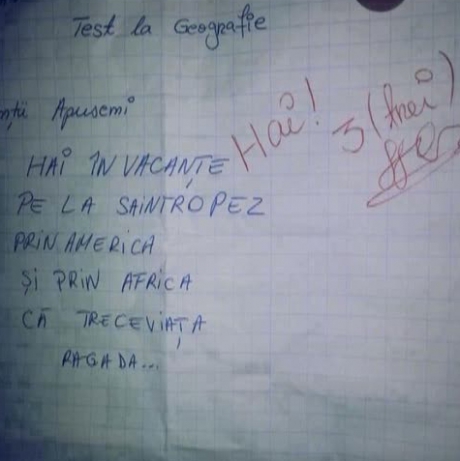 Test la Geografie
nții Apuseni
Hai!
3 (trei)
HAI ÎN VACANȚE
PE LA SAINTROPEZ
PRIN AMERICA
ȘI PRIN AFRICA
CĂ TRECEVIAȚA
RAGADA...